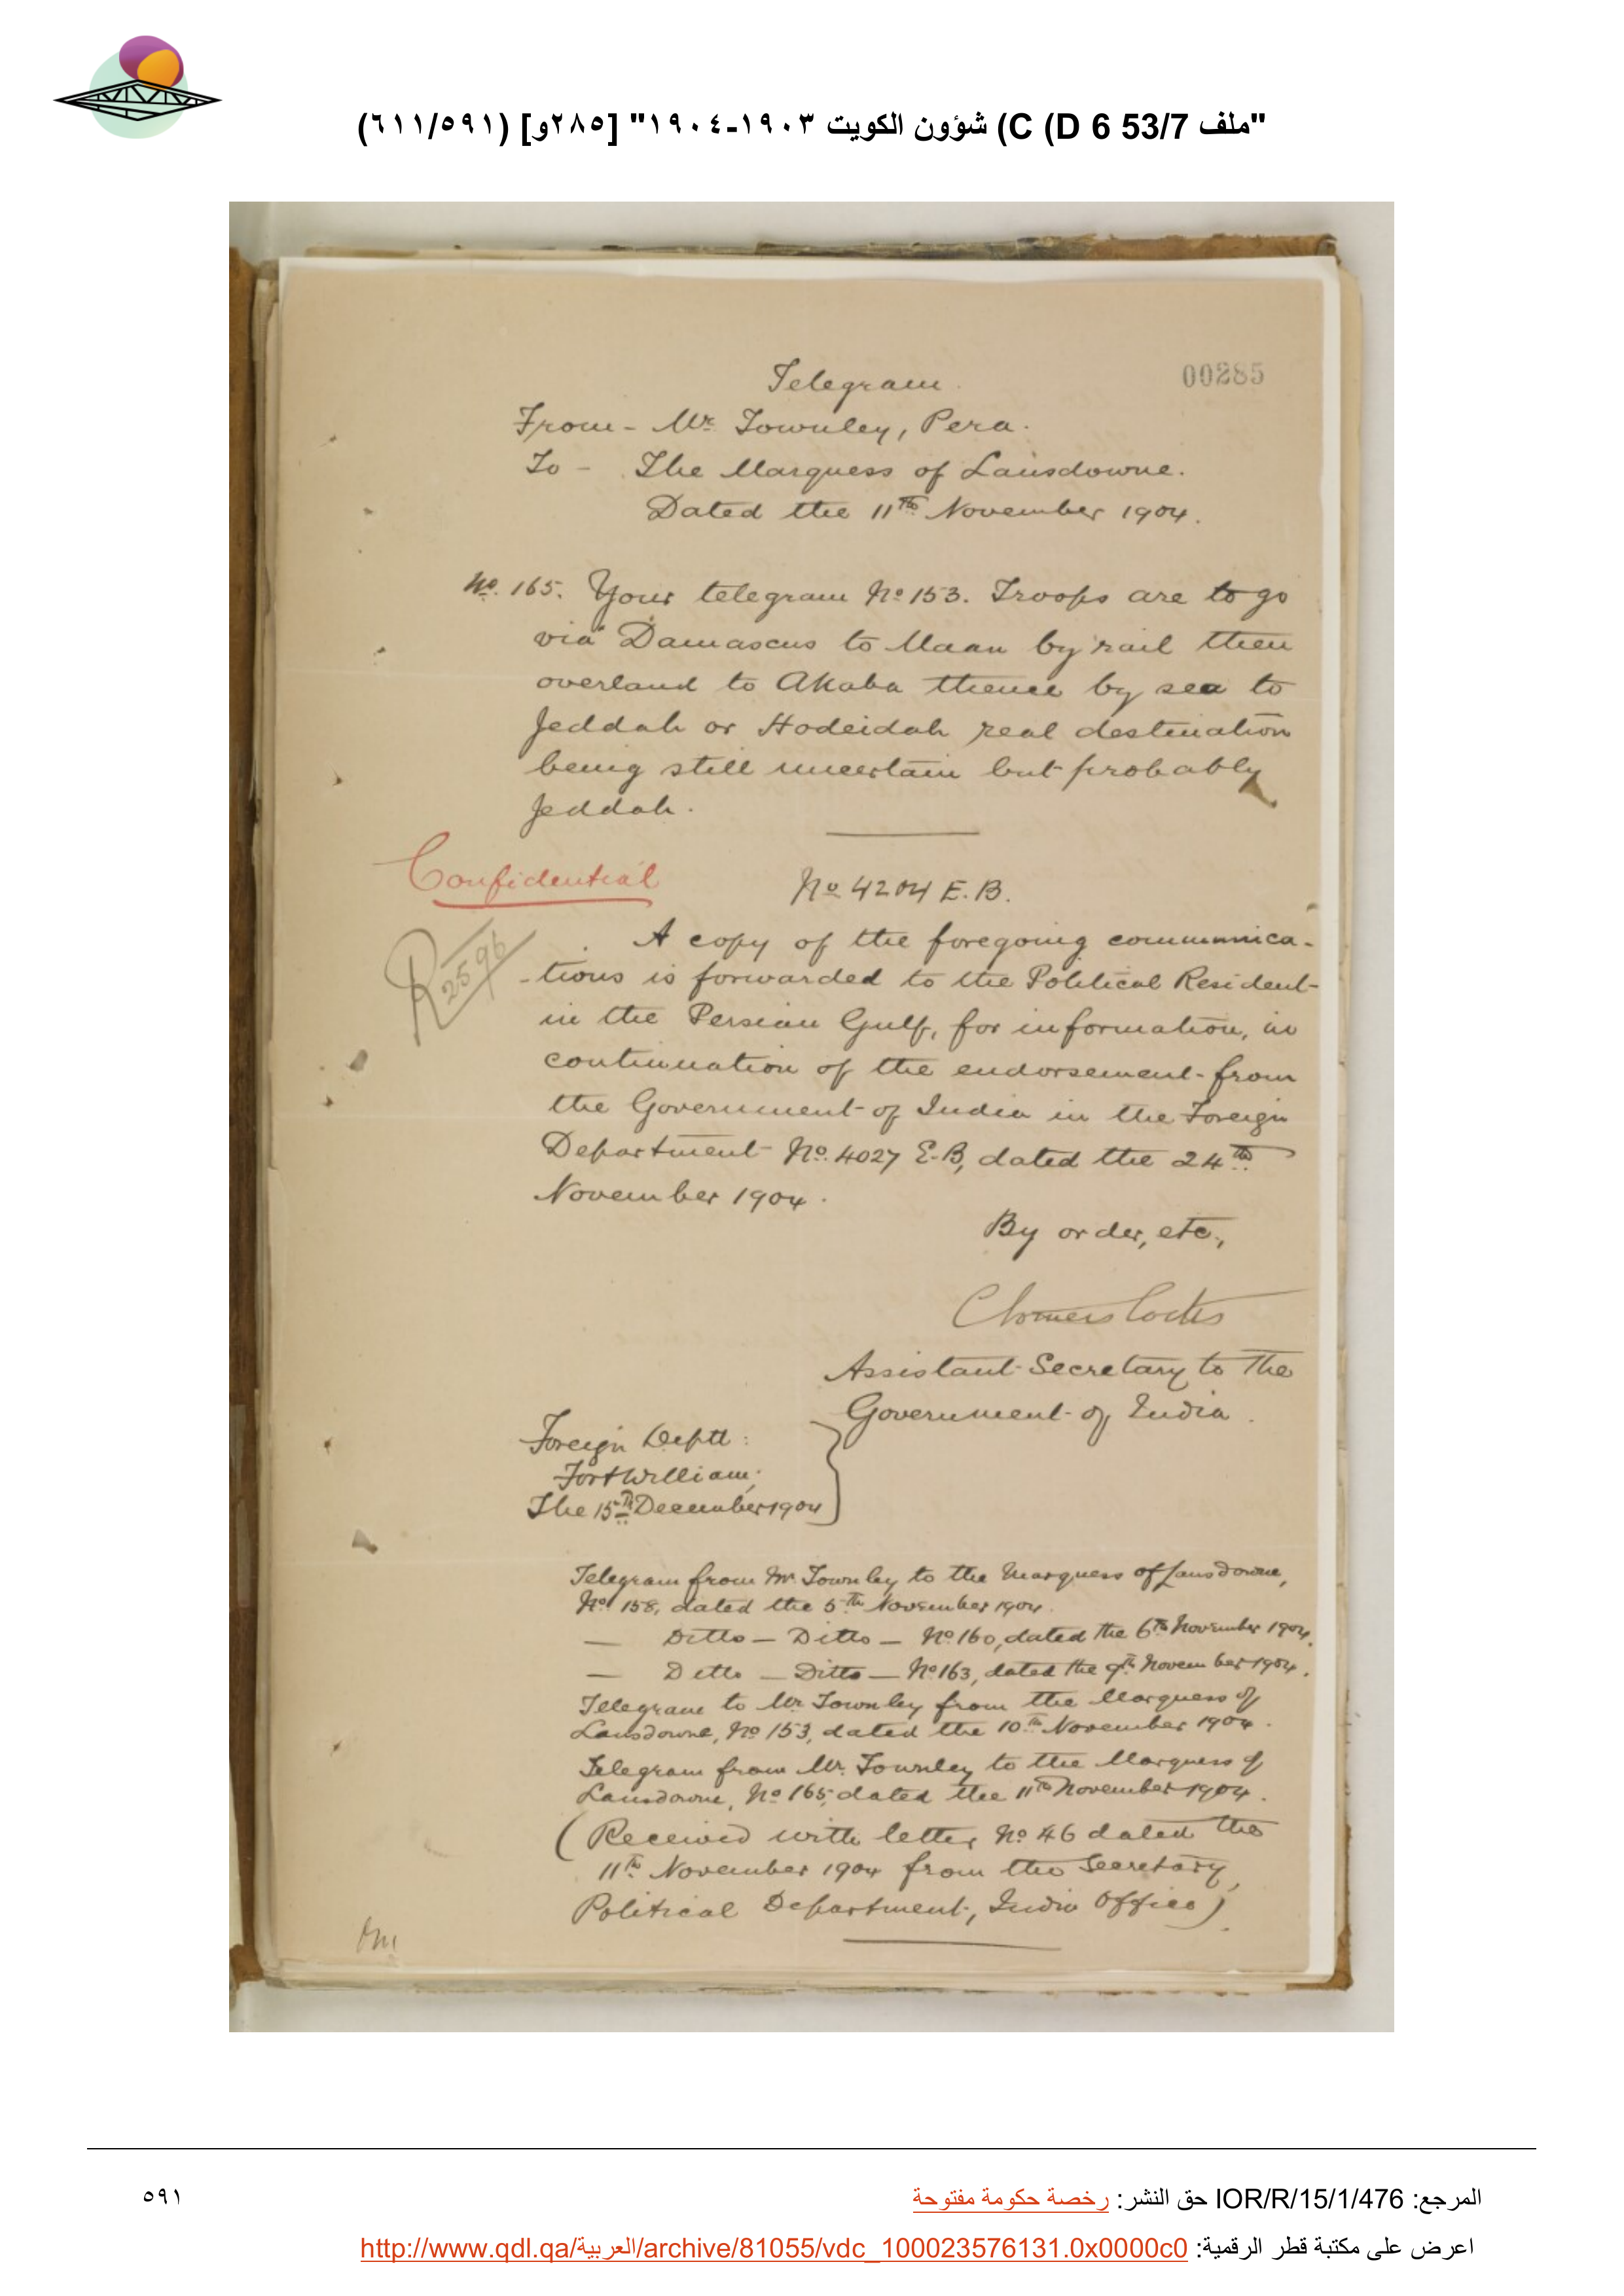 "ملف 53/7 C (D 6) شؤون الكويت ١٩٠٣-١٩٠٤" [٢٨٥و] (٦١١/٥٩١)
00285
Telegram.
From - Mr. Townley, Pera.
To - The Marquess of Lansdowne.
Dated the 11th November 1904.
No. 165. Your telegram No 153. Troops are to go
via Damascus to Maan by rail then
overland to Akaba thence by sea to
Jeddah or Hodeidah real destination
being still uncertain but probably
Jeddah.
Confidential
No 4204 E.B.
R 2596
A copy of the foregoing communica-
-tions is forwarded to the Political Resident
in the Persian Gulf, for information, in
continuation of the endorsement from
the Government of India in the Foreign
Department No. 4027 E.B, dated the 24th
November 1904.
By order, etc.,
Assistant Secretary to the
Government of India.
Foreign Deptt:
Fort William;
The 15th December 1904
Telegram from Mr. Townley to the Marquess of Lansdowne,
No. 158, dated the 5th November 1904.
— Ditto — Ditto — No 160, dated the 6th November 1904.
— Ditto — Ditto — No 163, dated the 9th November 1904.
Telegram to Mr. Townley from the Marquess of
Lansdowne, No 153, dated the 10th November 1904.
Telegram from Mr. Townley to the Marquess of
Lansdowne, No 165, dated the 11th November 1904.
(Received with letter No 46 dated the
11th November 1904 from the Secretary,
Political Department, India Office).
المرجع: IOR/R/15/1/476 حق النشر: رخصة حكومة مفتوحة
٥٩١
اعرض على مكتبة قطر الرقمية: http://www.qdl.qa/العربية/archive/81055/vdc_100023576131.0x0000c0